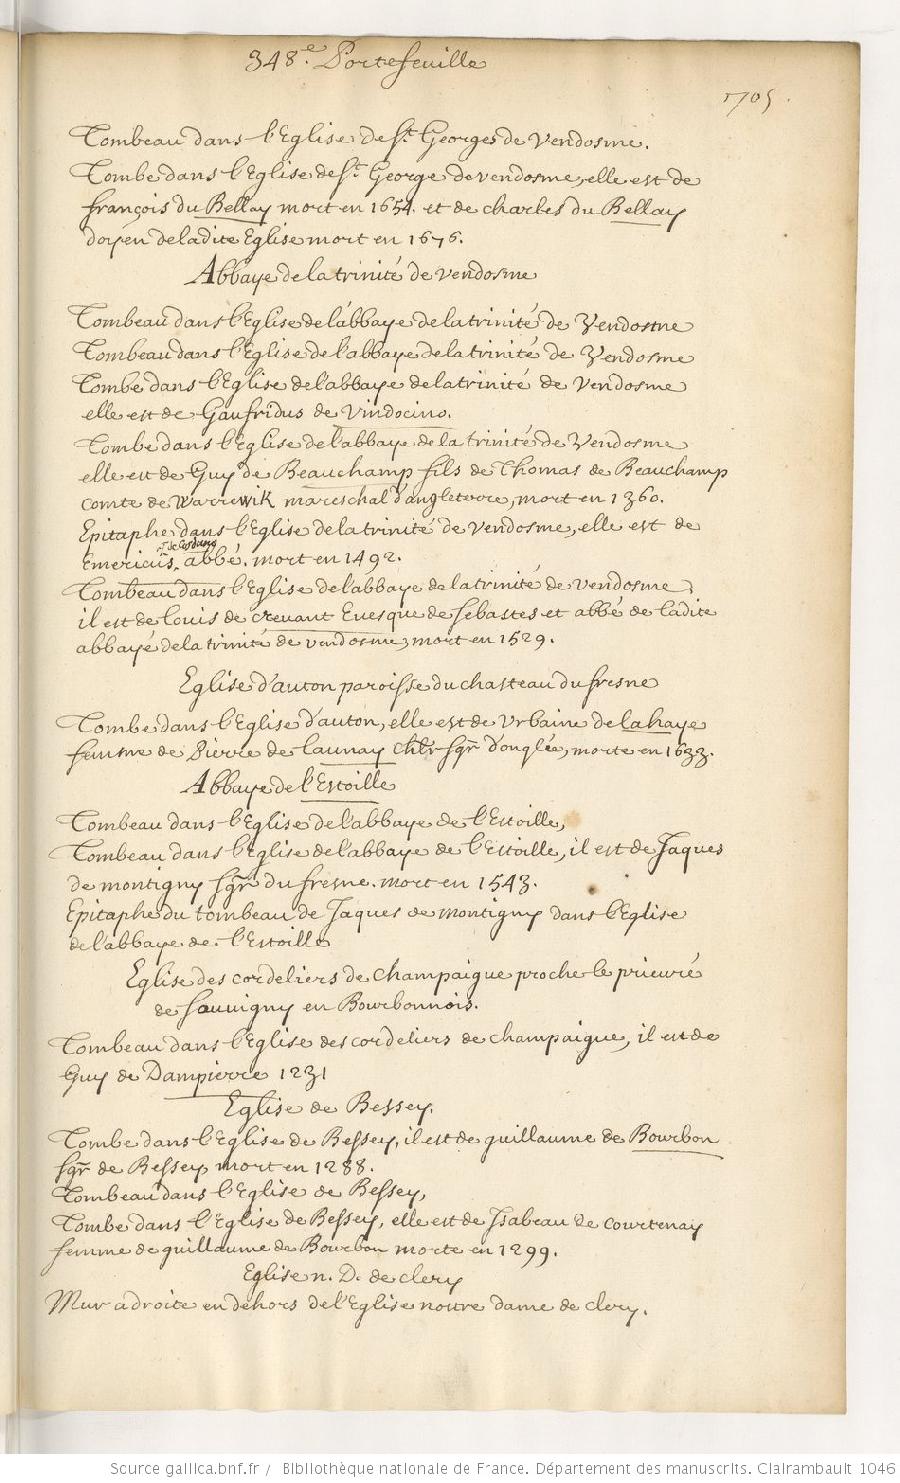 348.e Portefeuille
1705.
Tombeau dans l'Eglise de St. Georges de Vendosme.
Tombe dans l'Eglise de St. George de vendosme, elle est de
françois du Bellay mort en 1654. et de charles du Bellay
doyen de ladite Eglise mort en 1676.
Abbaye de la trinité de vendosme
Tombeau dans l'Eglise de l'abbaye de la trinité de Vendosme
Tombeau dans l'Eglise de l'abbaye de la trinité de Vendosme
Tombe dans l'Eglise de l'abbaye de la trinité de Vendosme
elle est de Gaufridus de Vindocino.
Tombe dans l'Eglise de l'abbaye de la trinité de Vendosme
elle est de Guy de Beauchamp fils de Thomas de Beauchamp
comte de Warruwik mareschal d'angleterre, mort en 1360.
Epitaphe dans l'Eglise de la trinité de Vendosme, elle est de
Emericus abbé. mort en 1492.
Tombeau dans l'Eglise de l'abbaye de la trinité de vendosme,
il est de Louis de crevant Evesque de sebastes et abbé de ladite
abbayé de la trinité de vendosme, mort en 1529.
Eglise d'auton paroisse du chasteau du fresne
Tombe dans l'Eglise d'auton, elle est de Vrbaine de la haye
femme de Pierre de launay chlr sgr d'onglée, morte en 1633.
Abbaye de l'Estoille
Tombeau dans l'Eglise de l'abbaye de l'Estoille,
Tombeau dans l'Eglise de l'abbaye de l'Estoille, il est de Jaques
de montigny sgr du fresne. mort en 1543.
Epitaphe du tombeau de Jaques de montigny dans l'Eglise
de l'abbaye de l'Estoille
Eglise des cordeliers de champaigue proche le prieuré
de sauvigny en Bourbonnois.
Tombeau dans l'Eglise des cordeliers de champaigue, il est de
Guy de Dampierre 1231
Eglise de Bessey.
Tombe dans l'Eglise de Bessey, il est de guillaume de Bourbon
sgr de Bessey mort en 1288.
Tombeau dans l'Eglise de Bessey,
Tombe dans l'Eglise de Bessey, elle est de Isabeau de courtenay
femme de guillaume de Bourbon morte en 1299.
Eglise n. D. de clery
Mur a droite en dehors de l'Eglise nostre dame de clery.
Source gallica.bnf.fr / Bibliothèque nationale de France. Département des manuscrits. Clairambault 1046